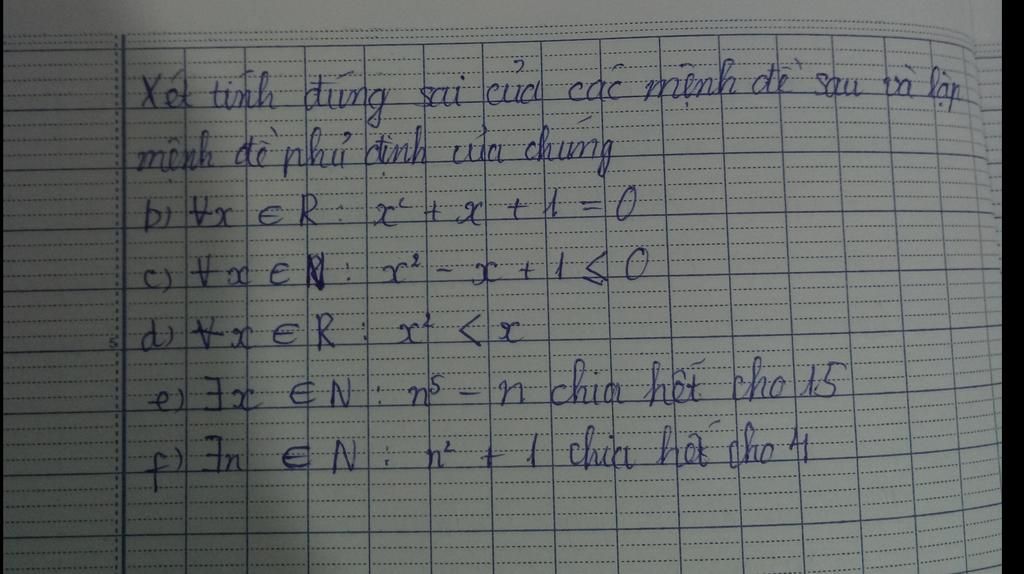 Xét tính đúng sai của các mệnh đề sau và lập
mệnh đề phủ định của chúng
b) ∀x ∈ R : x² + x + 1 = 0
c) ∀x ∈ N : x² - x + 1 ≤ 0
d) ∀x ∈ R : x² < x
e) ∃x ∈ N : n⁵ - n chia hết cho 15
f) ∃n ∈ N : n² + 1 chia hết cho 4